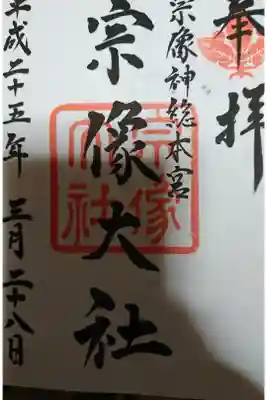 奉拝
宗像神総本宮
宗像大社
平成二十五年 三月二十八日
宗像
大社